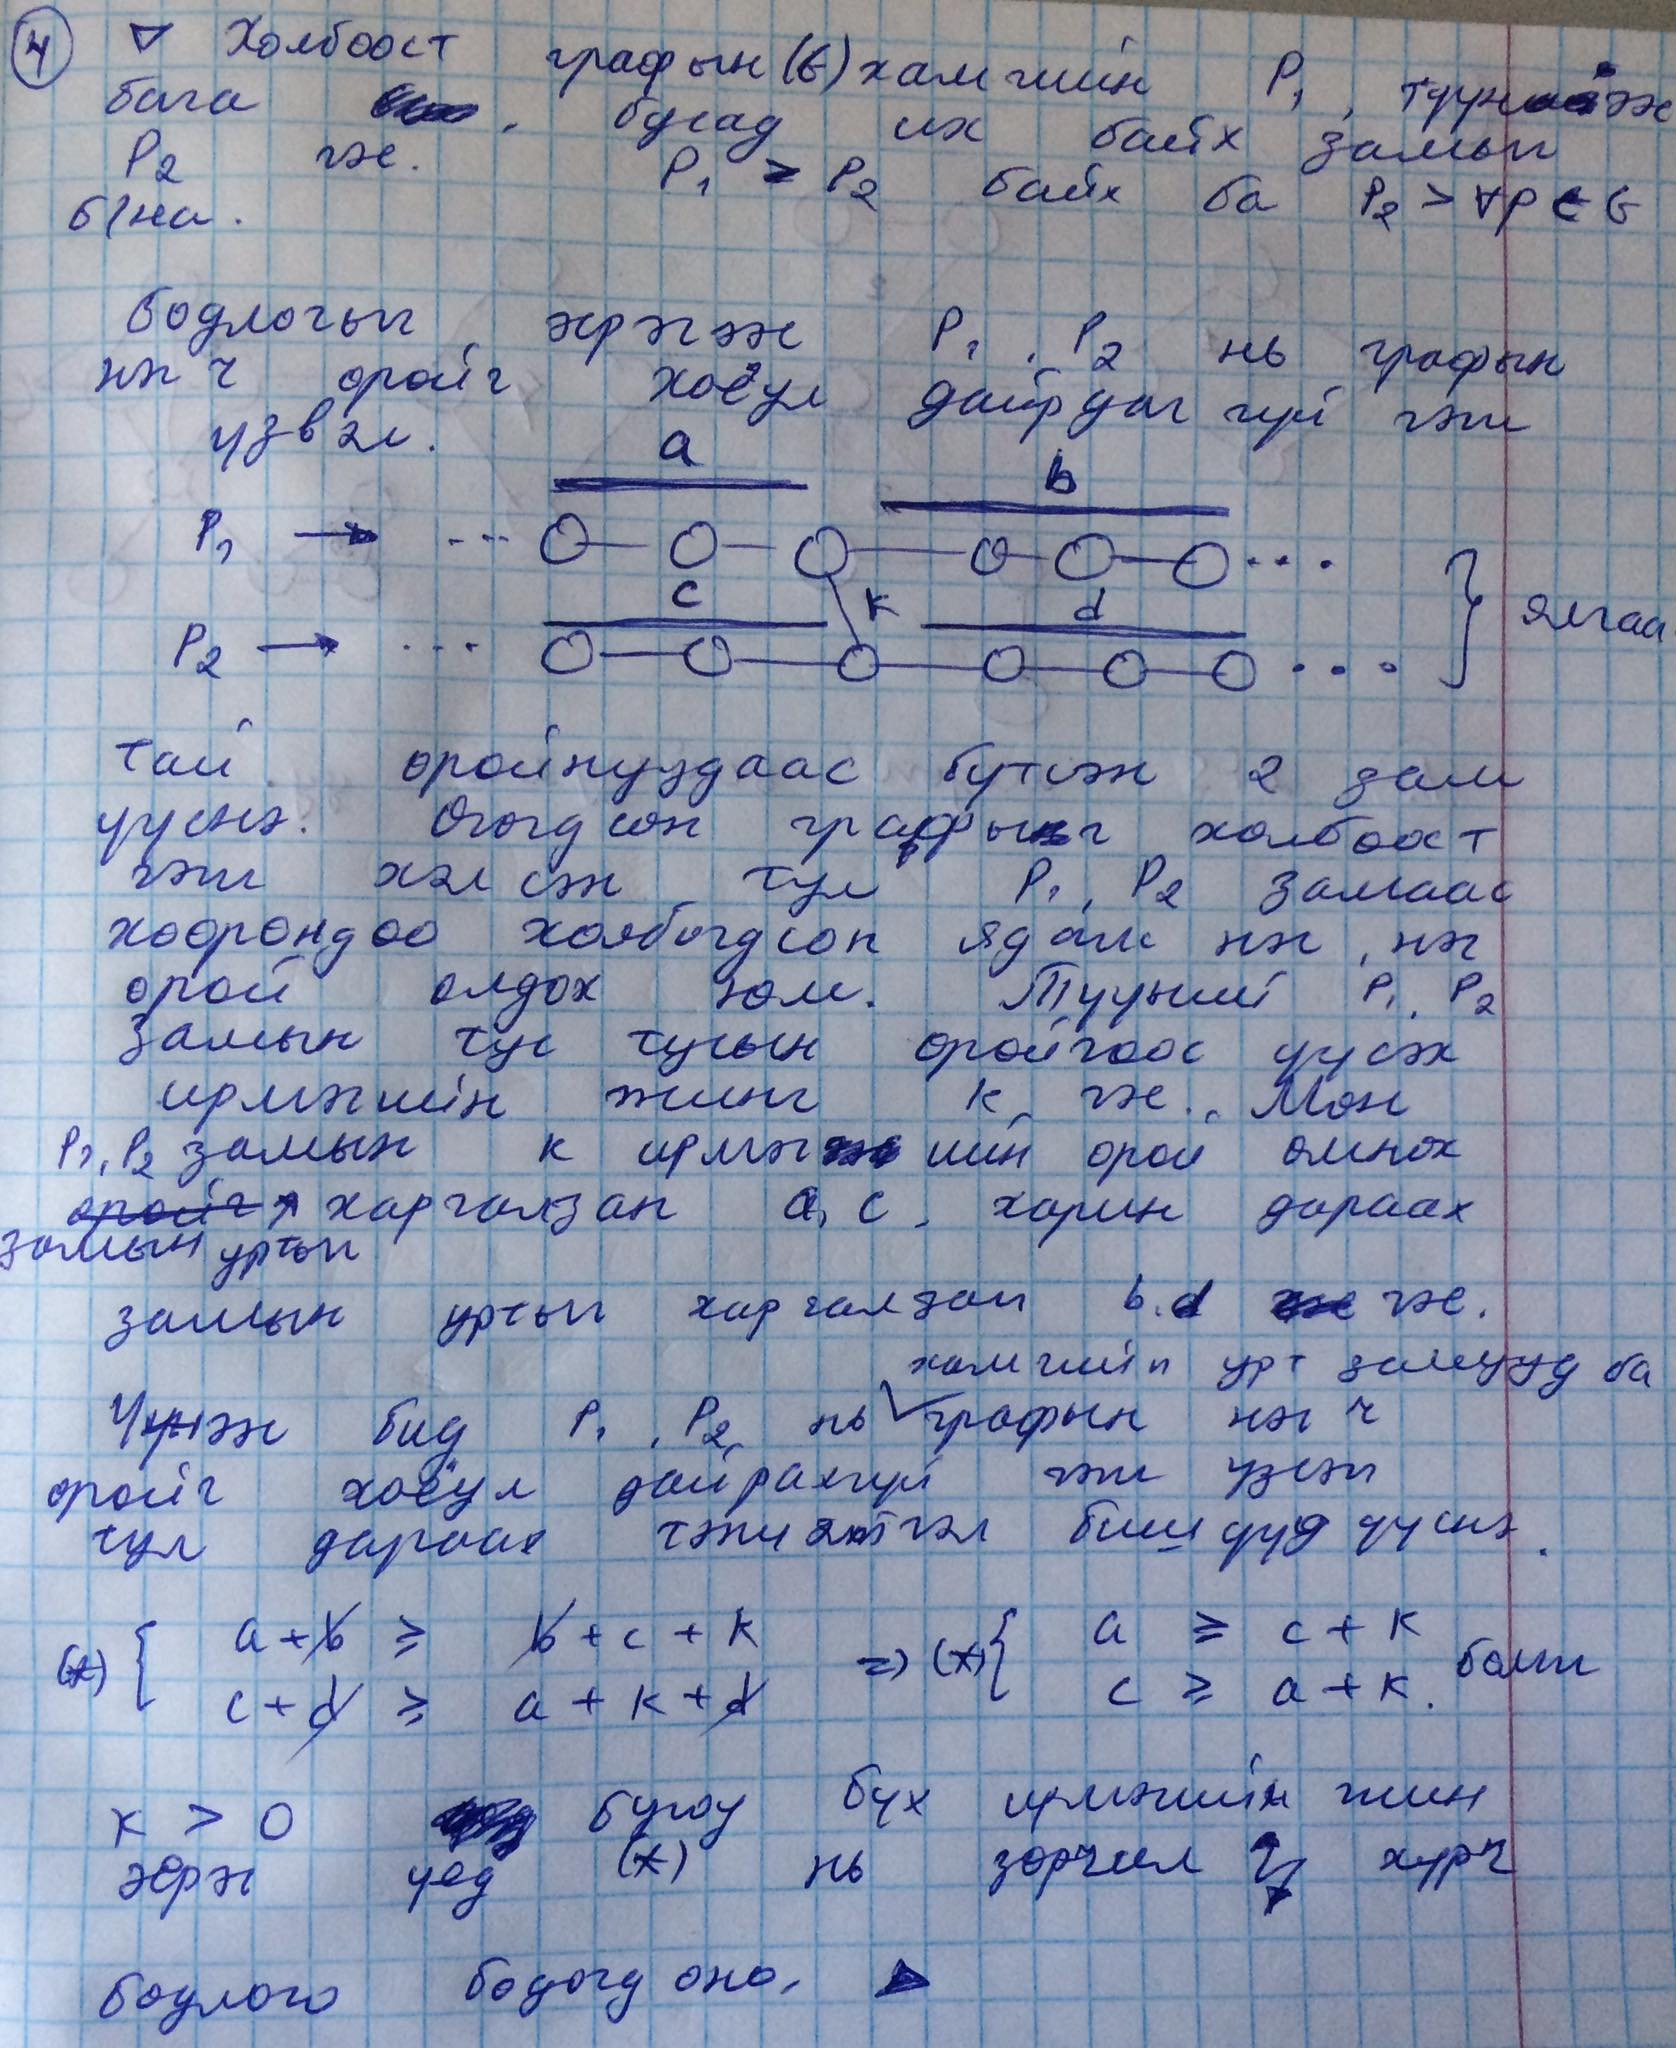 ④ ▽ Холбоост графын (G) хамгийн P₁, түүнээс
бага , бусад их байх замыг
P₂ гэе. P₁ ≥ P₂ байх ба P₂ > ∀P ∈ G
б/на.
Бодлогыг эсрэгээс P₁, P₂ нь графын
нэг ч оройг хоёул дайрдаггүй гэж
үзвэл.
a
b
P₁ → ... ...
c k d } ялгаа
P₂ → ... ...
тай оройнуудаас бүтсэн 2 зам
үүснэ. Өгөгдсөн графыг холбоост
гэж хэлсэн тул P₁, P₂ замаас
хоорондоо холбогдсон ядаж нэг, нэг
орой олдох юм. Түүний P₁, P₂
замын тус тусын оройгоос үүсэх
ирмэгийн жинг k гэе. Мөн
P₁, P₂ замын k ирмэгийн орой өмнөх
замын уртыг харгалзан a, c, харин дараах
замын уртыг харгалзан b, d гэе.
хамгийн урт замууд ба
Үүнээс бид P₁, P₂ нь графын нэг ч
оройг хоёул дайрахгүй гэж үзсэн
тул дараах тэнцэтгэл бишүүд үүснэ.
(*) { a + b ≥ b + c + k => (*) { a ≥ c + k
c + d ≥ a + k + d c ≥ a + k. болж
k > 0 бүгөу бүх ирмэгийн жин
эерэг үед (*) нь зөрчилд хүрч
бодлого бодогдоно. ▷